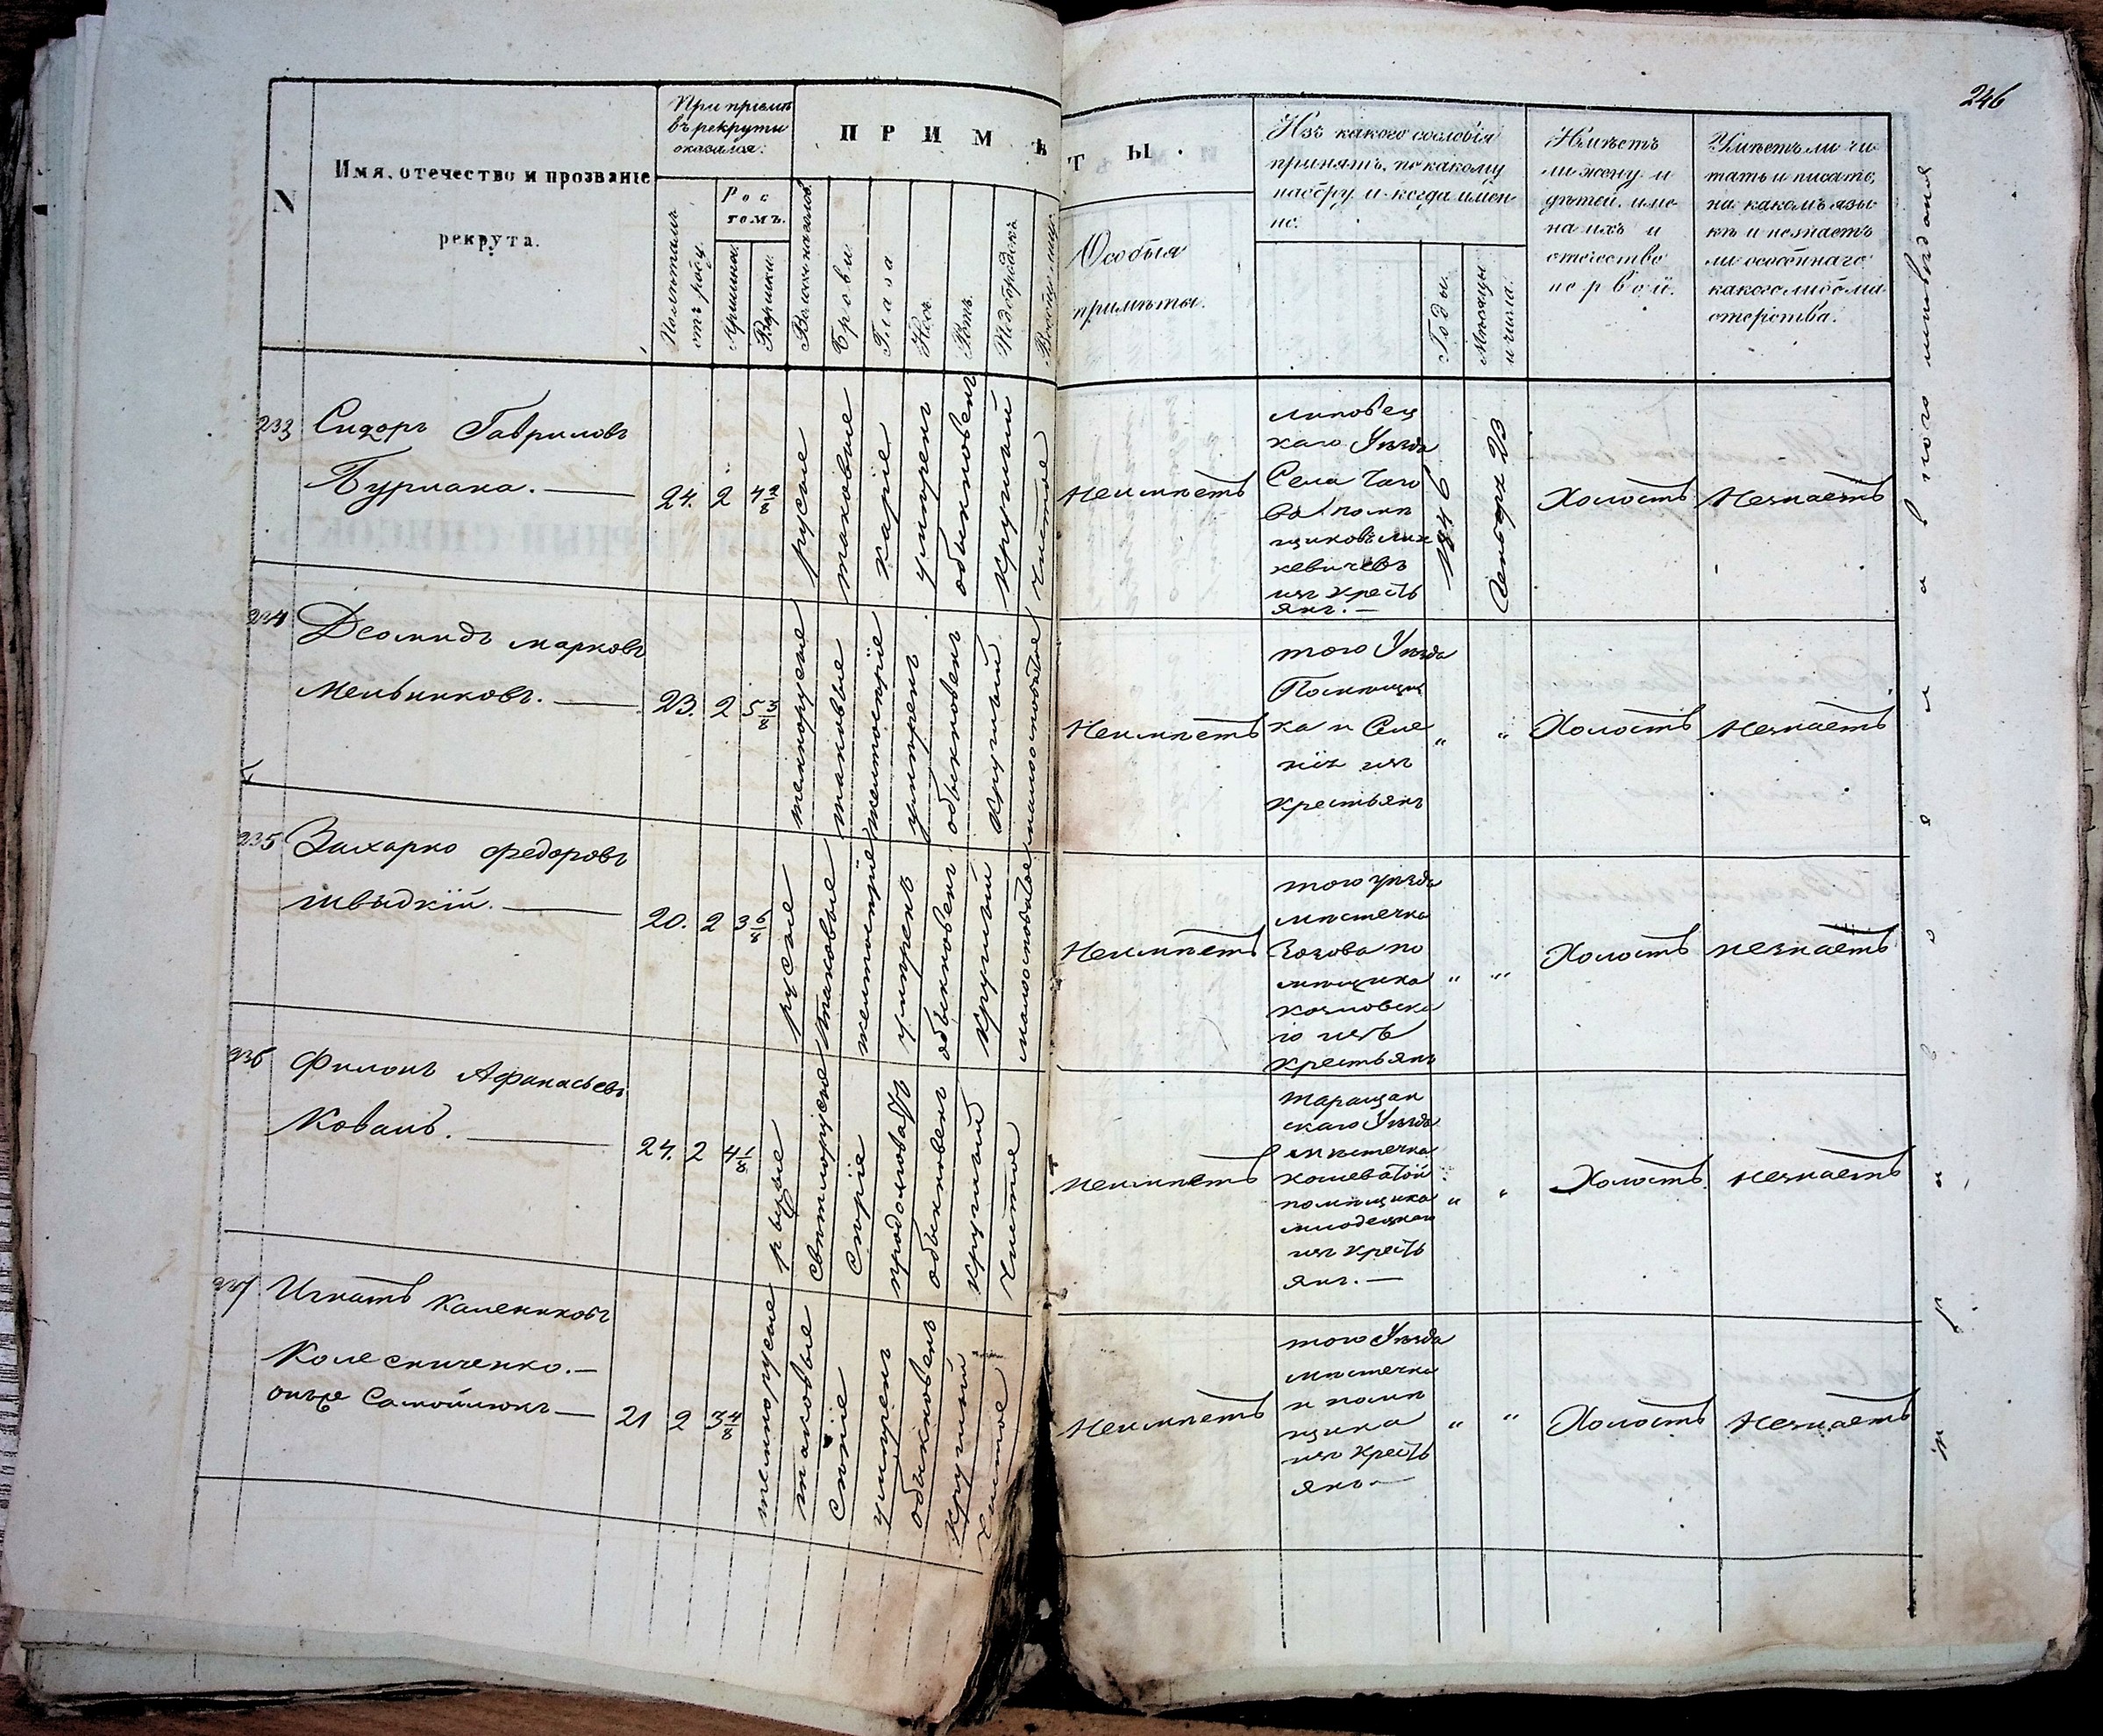 246
N
Имя, отечество и прозваніе
рекрута.
При пріемѣ
въ рекруты
оказался:
Полѣтамъ
отъ роду.
Рос
томъ.
Аршины.
Вершки.
ПРИМѢТЫ.
Волосы на головѣ.
Брови
Глаза
Носъ
Ротъ
Подбородокъ
Вообще лицо
Особыя
примѣты.
Изъ какого сословія
принятъ, по какому
набору и когда имен
но.
Годы.
Мѣсяцы
и числа.
Имѣетъ
ли жену и
дѣтей, име
на ихъ и
отечество
первой.
Умѣетъ ли чи
тать и писать,
на какомъ язы
кѣ и незнаетъ
ли особеннаго
какого либо ма
стерства.
233
Сидоръ Гавриловъ
Бурлака.
24. 2 4 2/8
русые
таковые
каріе
умѣренъ
обыкновенъ
круглый
чистое
Неимѣетъ
Липовец
каго Уѣзда
Села
помѣ
щиковъ
кевичевъ
изъ Кресть
янъ.
1846
Генваря 23
Холостъ
Незнаетъ
234
Деомидъ Марковъ
Мельниковъ.
23. 2 5 3/8
темнорусые
таковые
желтосѣріе
умѣренъ
обыкновенъ
круглый
малосповатое
Неимѣетъ
того Уѣзда
Помѣщи
ка и Селе
нія изъ
Крестьянъ
"
"
Холостъ
Незнаетъ
235
Захарко Федоровъ
Швыдкій.
20. 2 3 6/8
русые
таковые
желтосѣріе
умѣренъ
обыкновенъ
круглый
Неимѣетъ
того уѣзда
мѣстечка
Зозова по
мѣщика
Козловска
го изъ
Крестьянъ
"
"
Холостъ
незнаетъ
236
Филонъ Афанасьевъ
Коваль.
24. 2 4 1/8
рыжіе
свѣтлорусые
сѣріе
продолговатъ
обыкновенъ
круглый
Чистое
неимѣетъ
Таращан
скаго Уѣзда
мѣстечка
Кошеватой
помѣщика
Млодецкаго
изъ Кресть
янъ.
"
"
Холостъ
незнаетъ
237
Игнатъ Калениковъ
Колесниченко.
онъже Самойлюкъ
21 2 3 4/8
темнорусые
таковые
сѣріе
умѣренъ
обыкновенъ
круглый
Чистое
Неимѣетъ
того Уѣзда
мѣстечка
и помѣ
щика
изъ Кресть
янъ
"
"
Холостъ
Незнаетъ